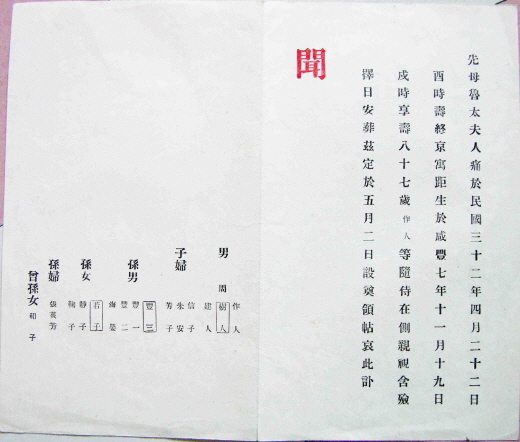 先母魯太夫人痛於民國三十二年四月二十二日
酉時壽終京寓距生於咸豐七年十一月十九日
戌時享壽八十七歲作人等隨侍在側親視含殮
擇日安葬茲定於五月二日設奠領帖哀此訃
聞
男 周 作人
樹人
建人
子婦 信子
朱安
芳子
孫男 豐三
豐一
豐二
海嬰
孫女 若子
靜子
鞠子
孫婦 張菼芳
曾孫女 和子